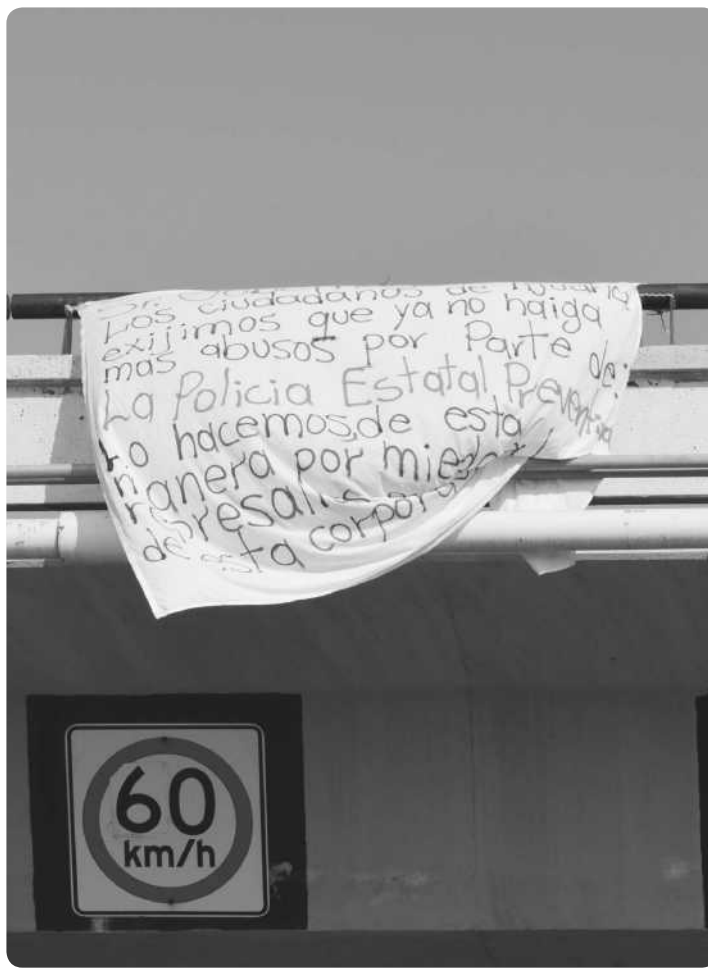 Los ciudadanos de
exijimos que ya no haiga
mas abusos por Parte de:
La Policia Estatal Preventiva
lo hacemos de esta
manera por miedo
de esta
60
km/h